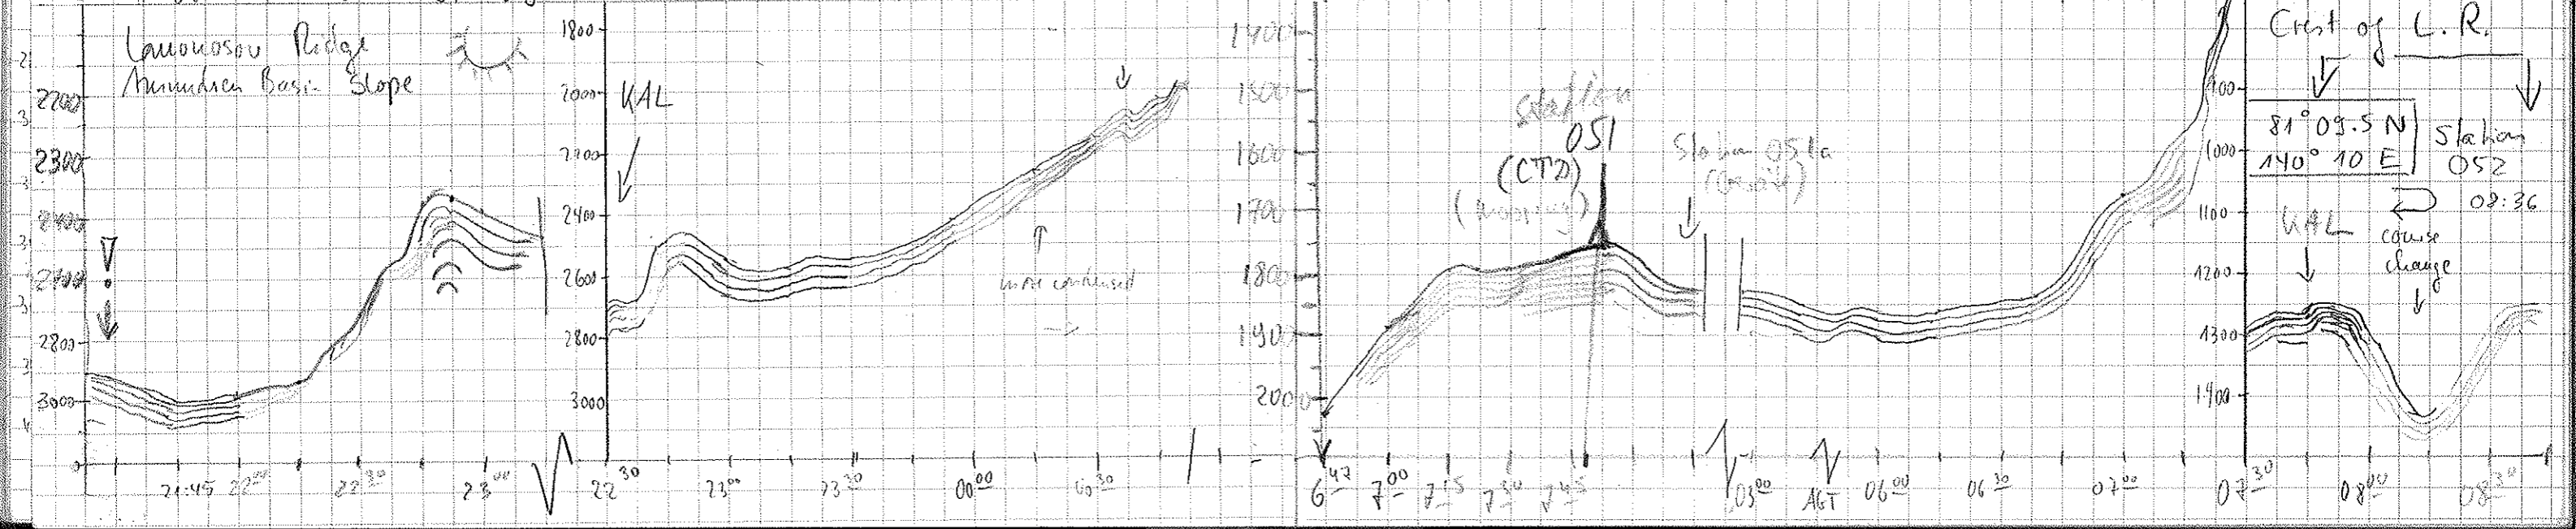 Lomonosov Ridge
Amundsen Basin Slope
2200
2300
2400
2700
2800
3000
21:45
22⁰⁰
22³⁰
23⁰⁰
1800
2000
2200
2400
2600
2800
3000
KAL
more condensed
22³⁰
23⁰⁰
23³⁰
00⁰⁰
00³⁰
1400
1500
1600
1700
1800
1900
2000
Station
051
(CTD)
Station 051a
6⁴⁷
7⁰⁰
7¹⁵
7³⁰
7⁴⁵
05⁰⁰
AGT
06⁰⁰
06³⁰
07⁰⁰
Crest of L.R.
81° 09.5 N
140° 10 E
Station
052
08:36
KAL
course
change
1000
1100
1200
1300
1400
07³⁰
08⁰⁰
08³⁰